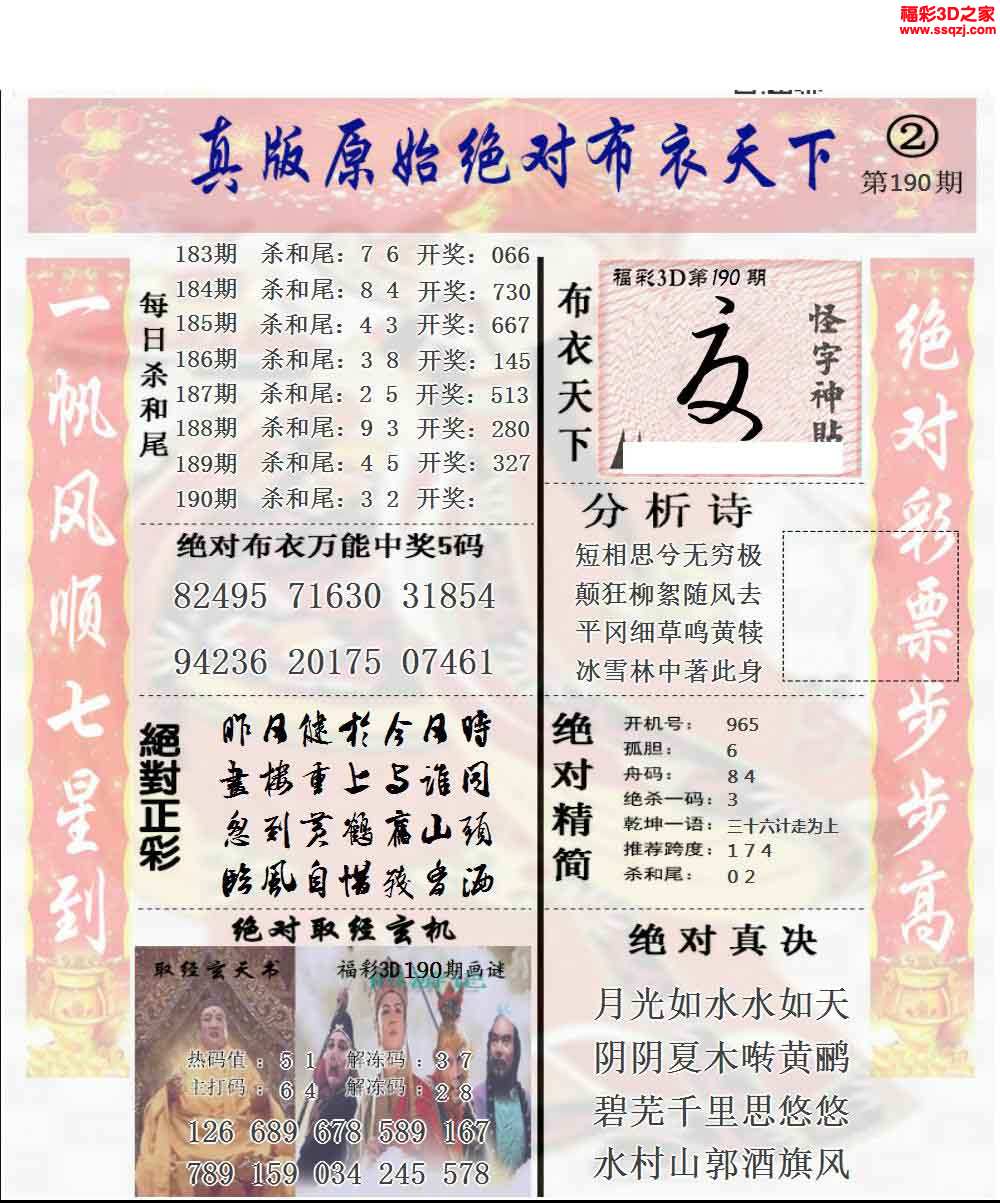 福彩3D之家
www.ssqzj.com
真版原始绝对布衣天下
②
第190期
一帆风顺七星到
每日杀和尾
183期 杀和尾：7 6 开奖：066
184期 杀和尾：8 4 开奖：730
185期 杀和尾：4 3 开奖：667
186期 杀和尾：3 8 开奖：145
187期 杀和尾：2 5 开奖：513
188期 杀和尾：9 3 开奖：280
189期 杀和尾：4 5 开奖：327
190期 杀和尾：3 2 开奖：
绝对布衣万能中奖5码
82495 71630 31854
94236 20175 07461
絕對正彩
昨日健於今日時
畫樓重上与谁同
忽到黄鶴舊山頭
臨風自惜残香洒
绝对取经玄机
取经玄天书
福彩3D190期画谜
热码值：5 1 解冻码：3 7
主打码：6 4 解冻码：2 8
126 689 678 589 167
789 159 034 245 578
布衣天下
福彩3D第190期
怪字神貼
分析诗
短相思兮无穷极
颠狂柳絮随风去
平冈细草鸣黄犊
冰雪林中著此身
绝对精简
开机号：965
孤胆：6
舟码：8 4
绝杀一码：3
乾坤一语：三十六计走为上
推荐跨度：1 7 4
杀和尾：0 2
绝对真决
月光如水水如天
阴阴夏木啭黄鹂
碧芜千里思悠悠
水村山郭酒旗风
绝对彩票步步高